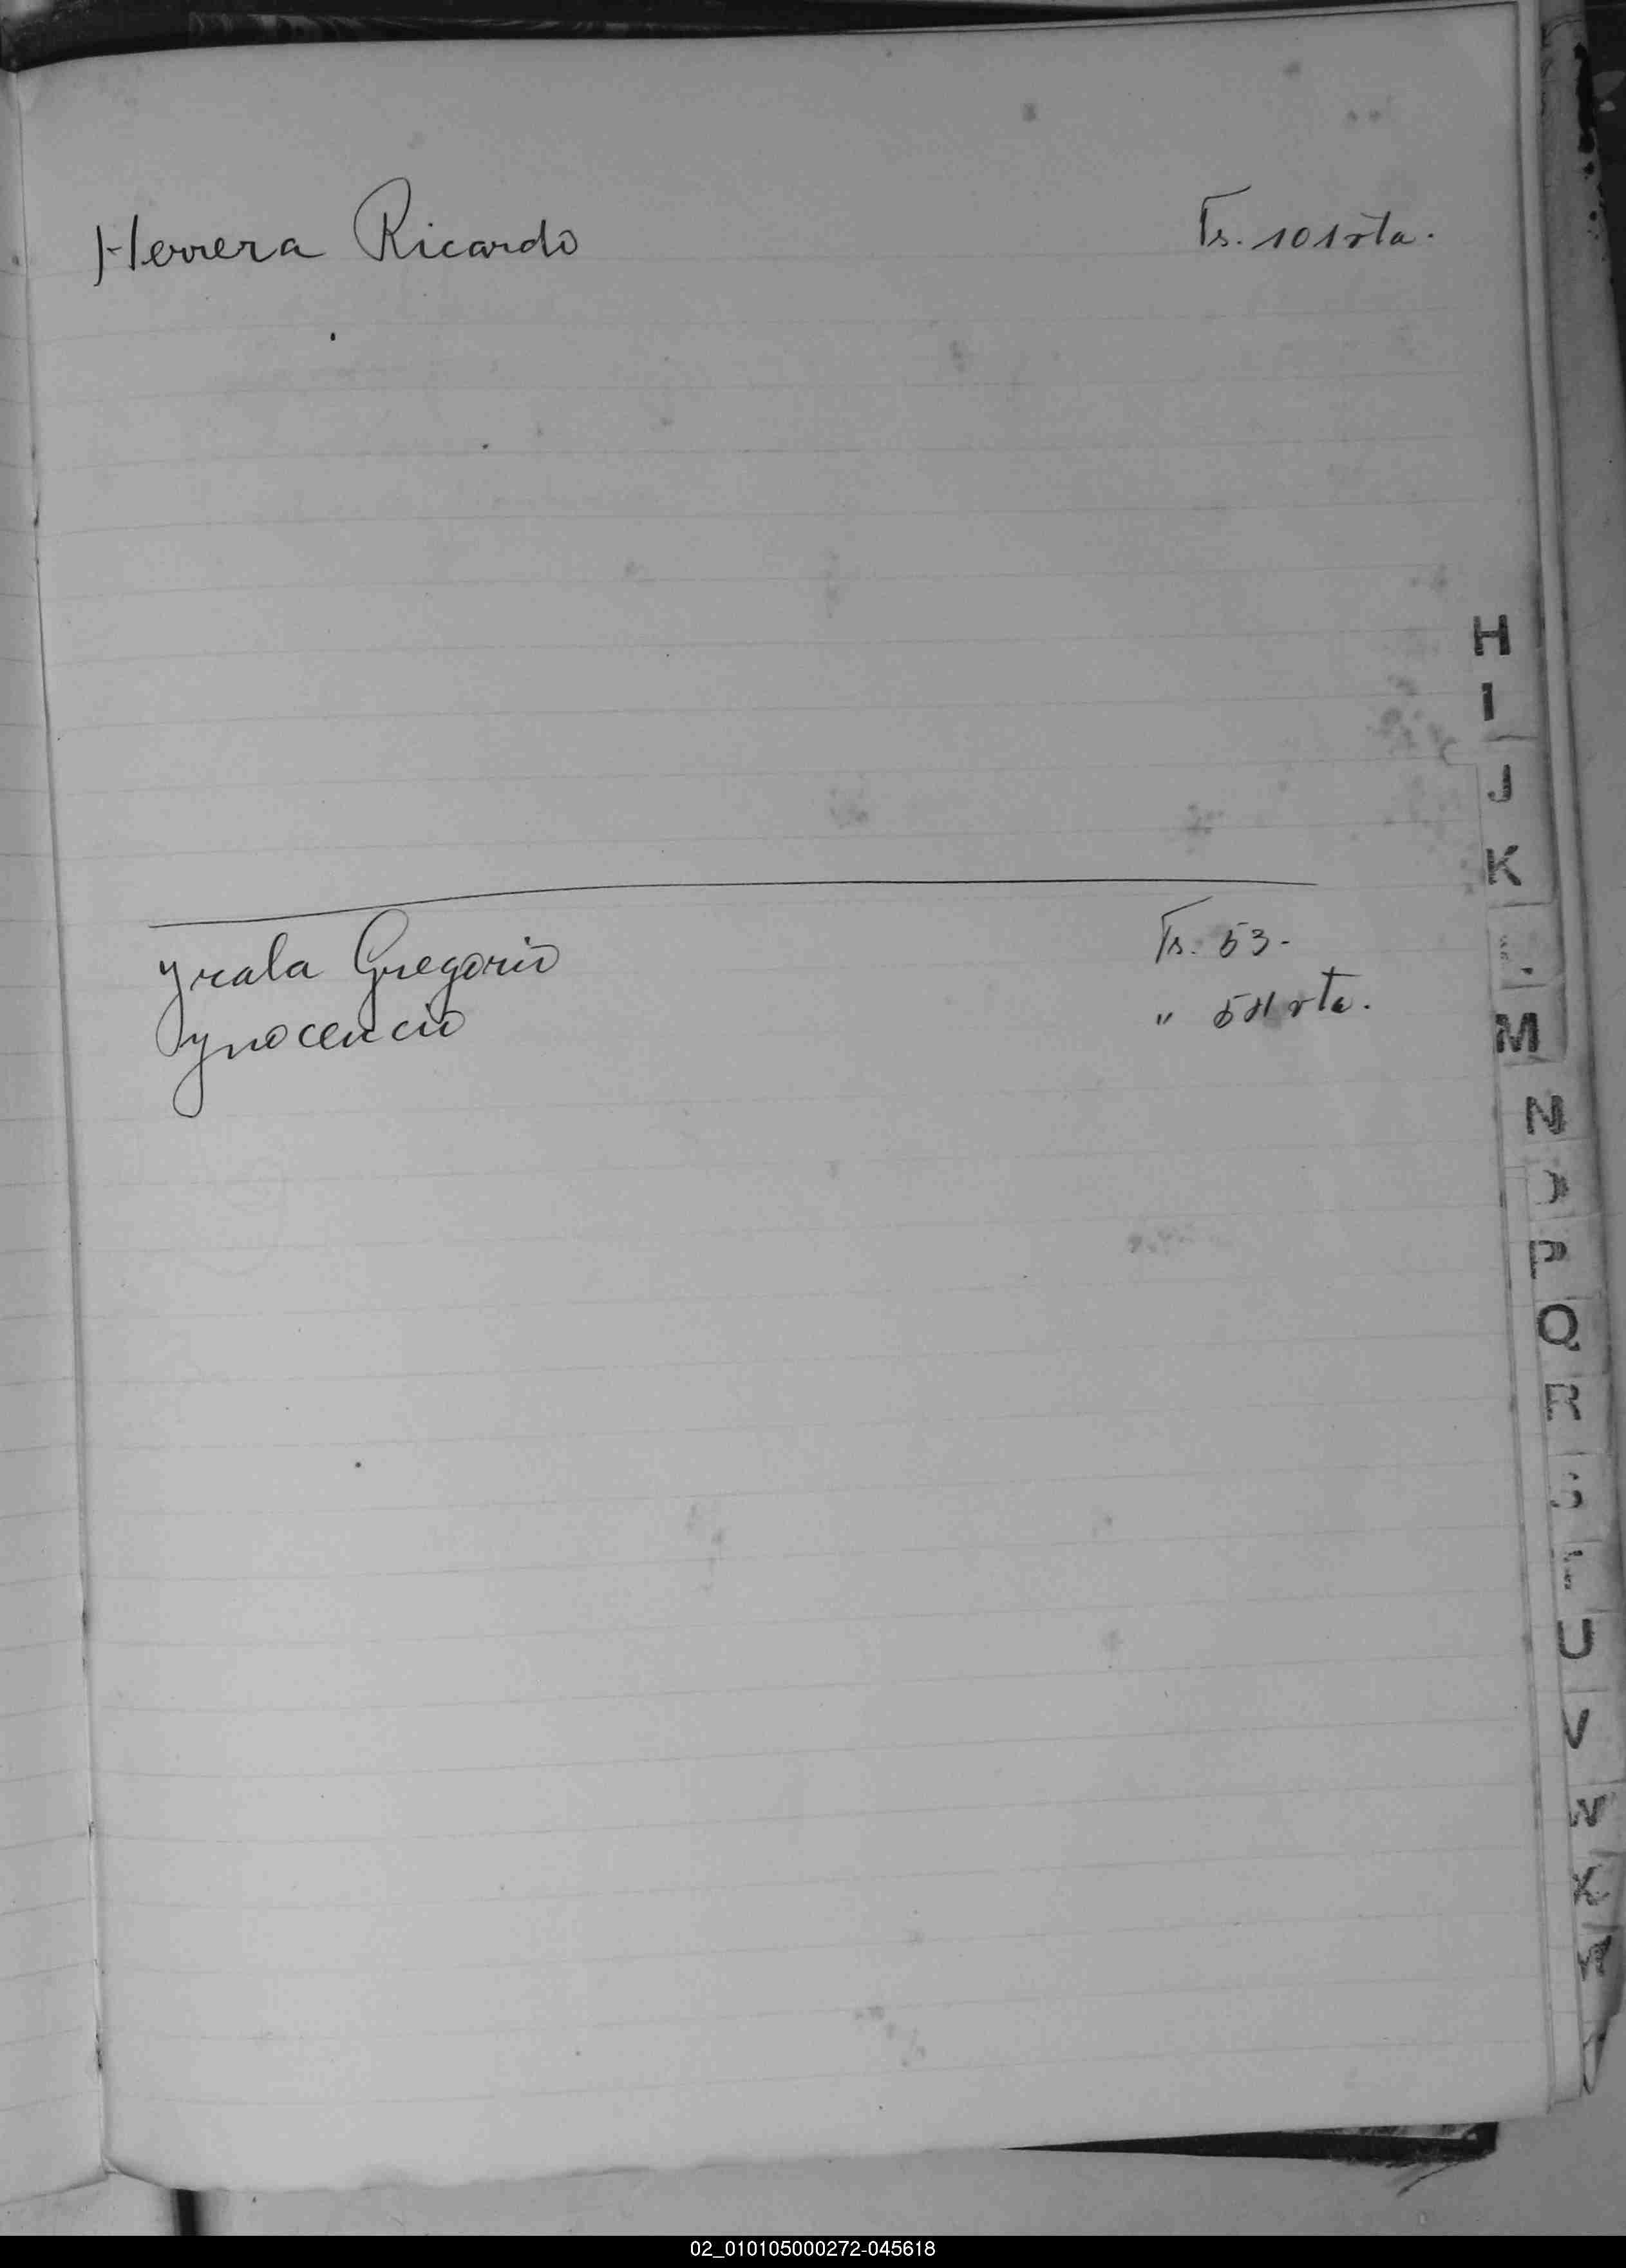 Herrera Ricardo Fs. 101 vta.
Yrala Gregorio Fs. 53.
Ynocencio " 54 vta.
H
I
J
K
M
N
P
Q
R
S
U
V
W
X
02_010105000272-045618